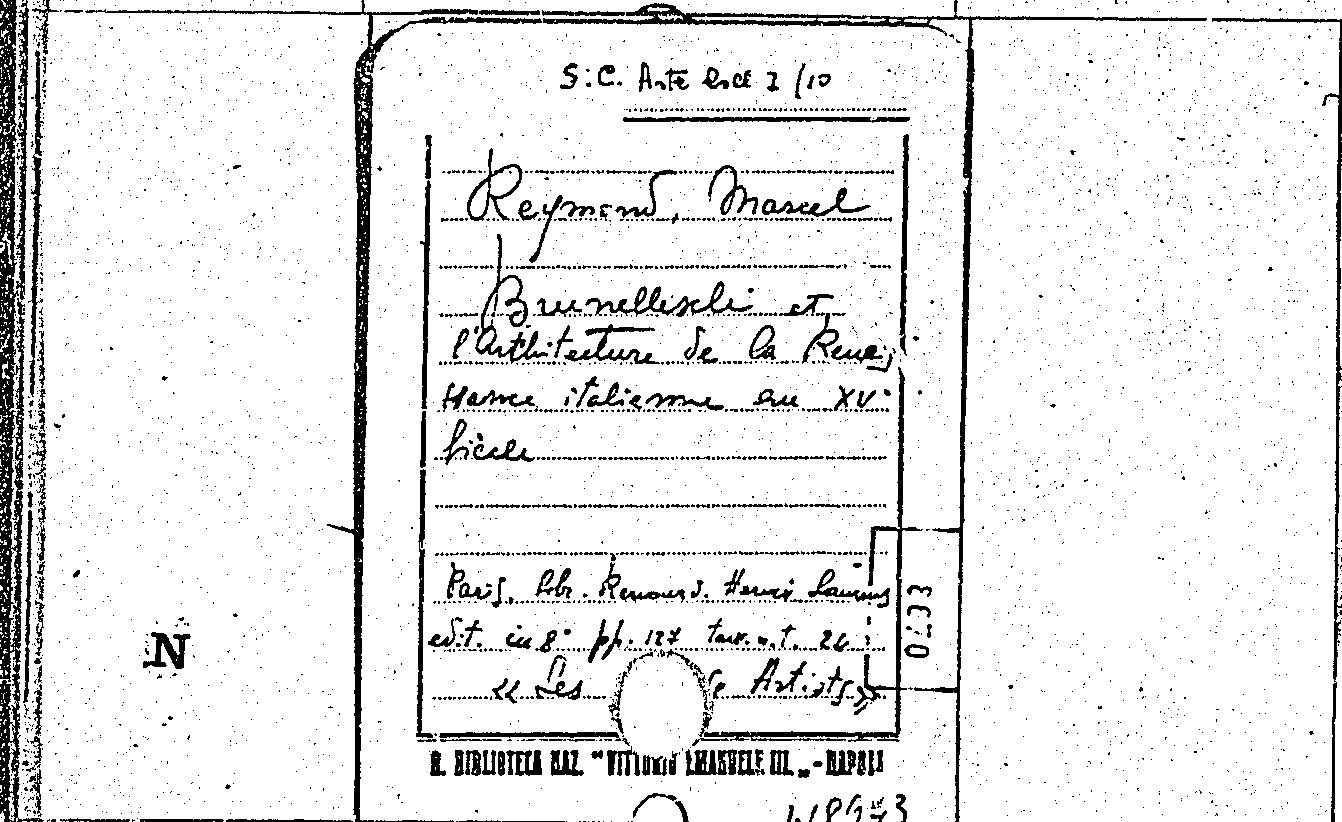 S.C. Arte
Reymond, Marcel
Brunelleschi et
l'Architecture de la Renais
sance italienne au XV°
siècle
Paris, Libr. Renouard. Henri Laurens
edit. in 8° pp. 127 tav. n.t. 24
« Les Artists »
R. BIBLIOTECA NAZ. "VITTORIO EMANUELE III." - NAPOLI
N